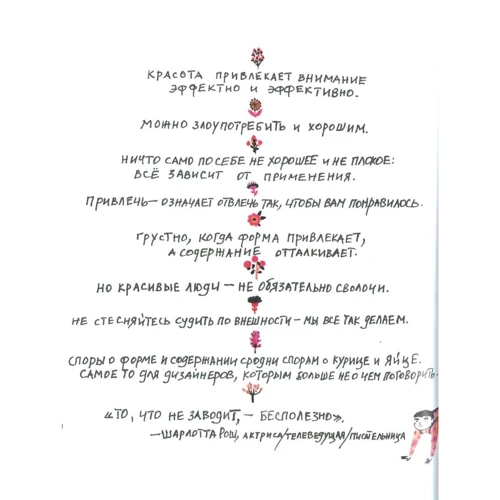 КРАСОТА ПРИВЛЕКАЕТ ВНИМАНИЕ
ЭФФЕКТНО И ЭФФЕКТИВНО.
МОЖНО ЗЛОУПОТРЕБИТЬ И ХОРОШИМ.
НИЧТО САМО ПО СЕБЕ НЕ ХОРОШЕЕ И НЕ ПЛОХОЕ:
ВСЁ ЗАВИСИТ ОТ ПРИМЕНЕНИЯ.
ПРИВЛЕЧЬ — ОЗНАЧАЕТ ОТВЛЕЧЬ ТАК, ЧТОБЫ ВАМ ПОНРАВИЛОСЬ.
ГРУСТНО, КОГДА ФОРМА ПРИВЛЕКАЕТ,
А СОДЕРЖАНИЕ ОТТАЛКИВАЕТ.
НО КРАСИВЫЕ ЛЮДИ — НЕ ОБЯЗАТЕЛЬНО СВОЛОЧИ.
НЕ СТЕСНЯЙТЕСЬ СУДИТЬ ПО ВНЕШНОСТИ — МЫ ВСЕ ТАК ДЕЛАЕМ.
СПОРЫ О ФОРМЕ И СОДЕРЖАНИИ СРОДНИ СПОРАМ О КУРИЦЕ И ЯЙЦЕ.
САМОЕ ТО ДЛЯ ДИЗАЙНЕРОВ, КОТОРЫМ БОЛЬШЕ НЕ О ЧЕМ ПОГОВОРИТЬ.
«ТО, ЧТО НЕ ЗАВОДИТ, — БЕСПОЛЕЗНО».
— ШАРЛОТТА РОШ, АКТРИСА/ТЕЛЕВЕДУЩАЯ/ПИСАТЕЛЬНИЦА